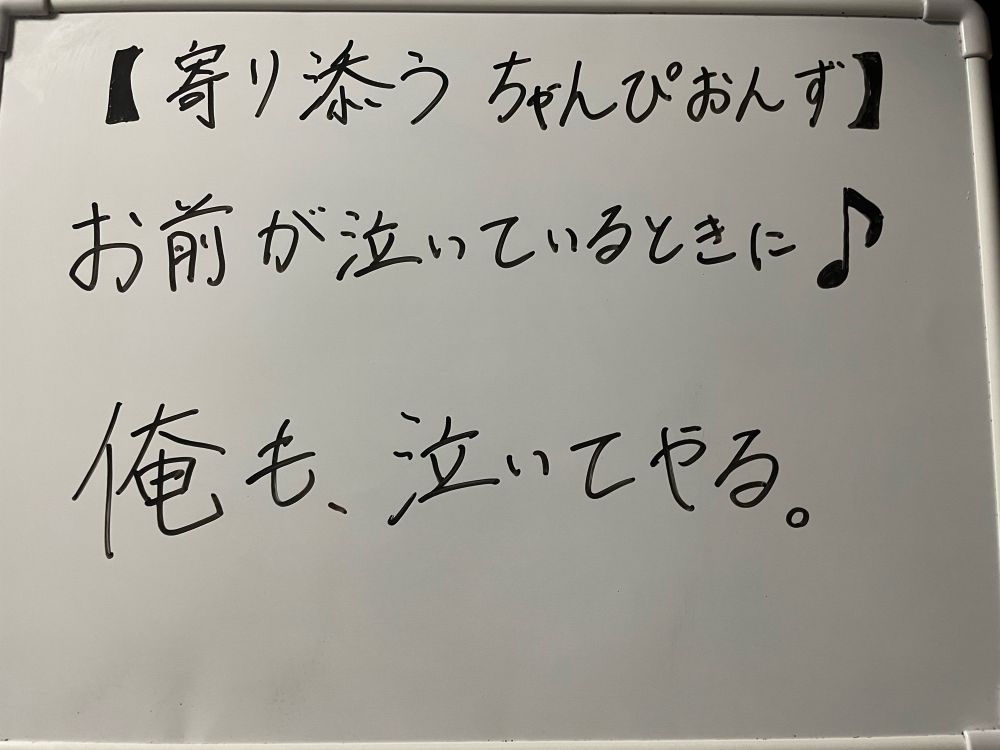 【寄り添う ちゃんぴおんず】
お前が泣いているときに♪
俺も、泣いてやる。